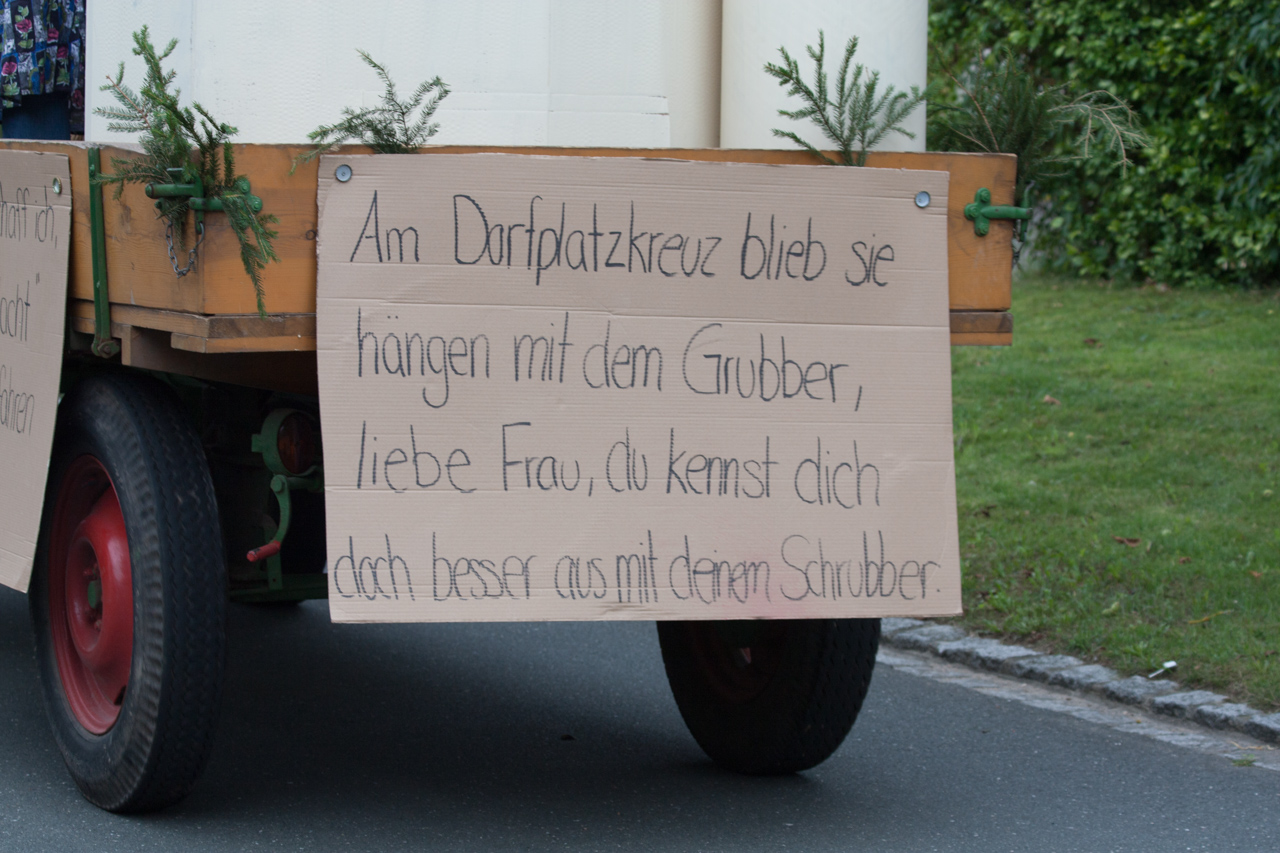 haff ich,
acht"
fahren
Am Dorfplatzkreuz blieb sie
hängen mit dem Grubber,
liebe Frau, du kennst dich
doch besser aus mit deinem Schrubber.